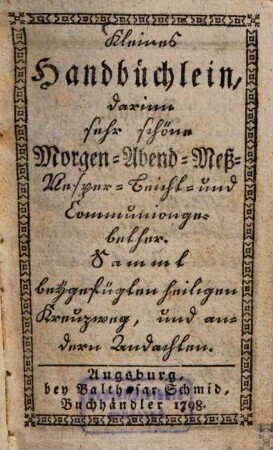 Kleines
Handbüchlein,
darinn
sehr schöne
Morgen-Abend-Meß-
Vesper-Beicht-und
Communionge-
bether.
Sammt
beygefügten heiligen
Kreuzweg, und an-
dern Andachten.
Augsburg,
bey Balthasar Schmid,
Buchhändler 1798.